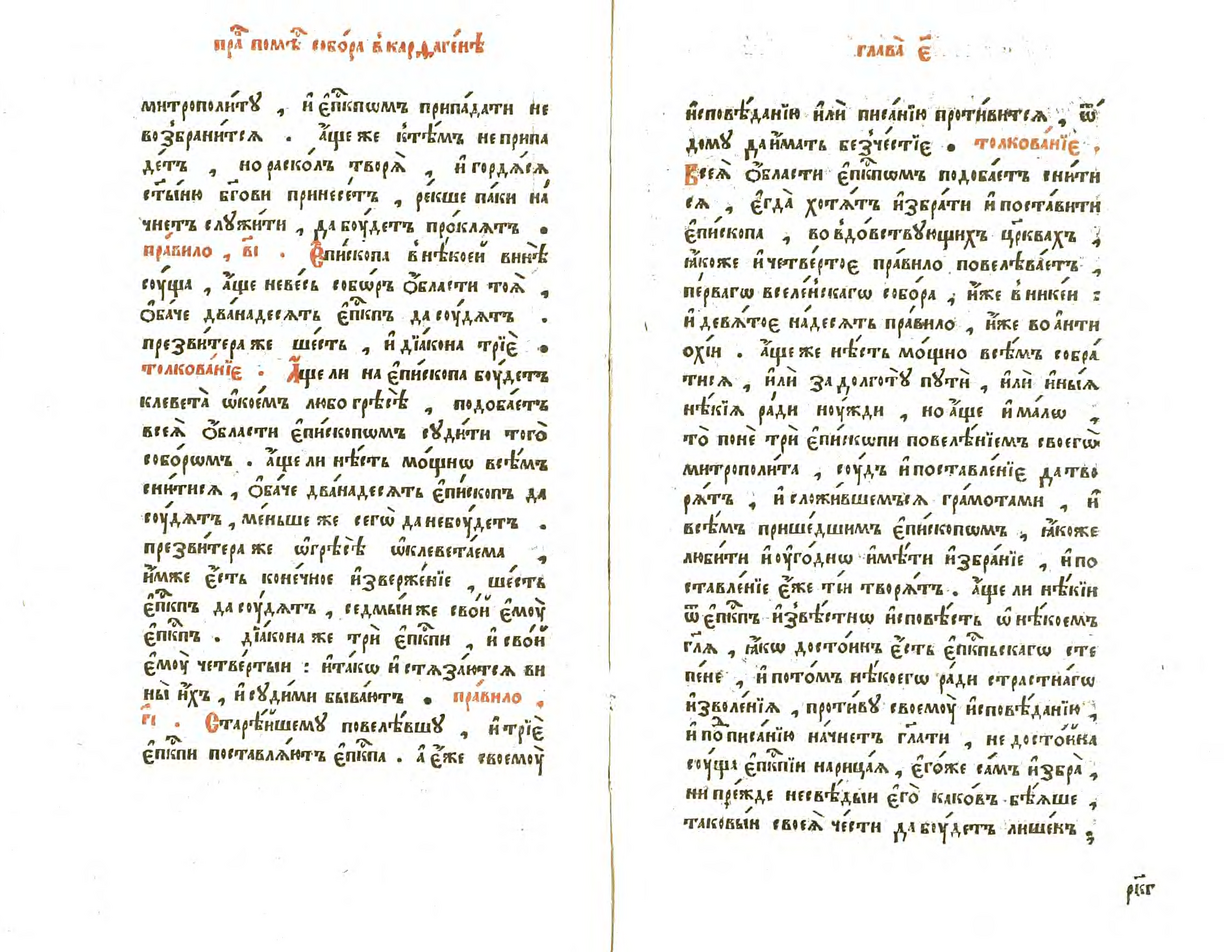 пра̑ пом̑ѣ собо́ра в̾карѳаге́нѣ
митрополи́тꙋ , и҆ є҆пⷭ҇кпѡмъ припа́дати не
во з̾брани́тсѧ . а҆́ще же к̾тѣ́мъ не припа
де́тъ , но раско́лъ творѧ̀ , и҆ горდѧ́сѧ
ст҃ы́ню бг҃ови принесе́тъ , ре́кше па́ки на́
чнетъ слꙋжи́ти , да бꙋ́детъ про́клѧтъ .
пра́вило , в҃і . Є҆пи́скопа в̾нѣ́коей винѣ̀
сꙋ́ща , а҆́ще неве́сь собо́ръ ѻ҆́бласти тоѧ̀ ,
ѻ҆ба́че двана́десѧть є҆пⷭ҇кпъ да сꙋ́дѧтъ .
презви́тера же ше́сть , и҆ дїа́кона трїѐ .
толкова́нїе . А҆́ще ли на є҆пи́скопа бꙋ́детъ
клевета̀ ѡ҆ко́емъ любо грѣсѣ̀ , подоба́етъ
всеѧ̀ ѻ҆́бласти є҆пи́скопѡмъ сꙋди́ти того̀
собо́рѡмъ . а҆́ще ли нѣ́сть мо́щнѡ всѣ́мъ
сни́тисѧ , ѻ҆ба́че двана́десѧть є҆пи́скопъ да
сꙋ́дѧтъ , ме́ньше же сегѡ̀ да небꙋ́детъ .
презви́тера же ѡ҆грѣсѣ̀ ѡ҆клевета́ема ,
и҆́мже є҆́сть коне́чное и҆зверже́нїе , ше́сть
є҆пⷭ҇кпъ да сꙋ́дѧтъ , седмы́и же сво́й є҆мꙋ̀
є҆пⷭ҇кпъ . дїа́кона же трѝ є҆пⷭ҇кпи , и҆ сво́й
є҆мꙋ̀ четве́ртыи : и҆та́кѡ и҆ стѧза́ютсѧ ви
ны̀ и҆́хъ , и҆ сꙋди́ми быва́ютъ . пра́вило .
г҃і . Старѣ́йшемꙋ повелѣ́вшꙋ , и҆ трїѐ
є҆пⷭ҇кпи поставлѧ́ютъ є҆пⷭ҇кпа . а҆ є҆́же своемꙋ̀
глава̀ є҃
и҆сповѣ́данїю и҆лѝ писа́нїю проти́витсѧ , ѿ
домꙋ̀ да и҆́мать без̾че́стїе . толкова́нїе .
Всеѧ̀ ѻ҆́бласти є҆пⷭ҇кпѡмъ подоба́етъ сни́ти
сѧ , є҆гда̀ хотѧ́тъ и҆збра́ти и҆ поста́вити
є҆пи́скопа , во вдо́вствꙋющихъ цр҃квахъ ,
ꙗ҆́коже и҆ четве́ртое пра́вило повелѣва́етъ ,
пе́рвагѡ вселе́нскагѡ собо́ра , и҆́же в̾нике́и :
и҆ девѧ́тое на́десѧть пра́вило , и҆́же во а҆нти
охі́и . а҆́ще же нѣ́сть мо́щно всѣ́мъ собра́
тисѧ , и҆лѝ за долготꙋ̀ пꙋтѝ , и҆лѝ и҆ны́ѧ
нѣ́кїѧ ра́ди нꙋ́жди , но а҆́ще и҆ ма́лѡ ,
то̀ понѐ трѝ є҆пи́скопи повелѣ́нїемъ своегѡ̀
митрополи́та , сꙋ́дъ и҆ поставле́нїе да тво
рѧ́тъ , и҆ сложи́вшемъсѧ гра́мотами , и҆
всѣ́мъ прише́дшимъ є҆пи́скопѡмъ , ꙗ҆́коже
люби́ти и҆ ᲂу҆го́днѡ и҆мѣ́ти и҆збра́нїе , и҆ по
ставле́нїе є҆́же ті́и творѧ́тъ . а҆́ще ли нѣ́кїи
ѿ є҆пⷭ҇кпъ и҆звѣ́стнѡ и҆сповѣ́сть ѡ҆ нѣ́коемъ
гл҃ѧ , ꙗ҆́кѡ досто́инъ є҆́сть є҆пⷭ҇кпьскагѡ сте
пе́не , и҆ пото́мъ нѣ́коегѡ ра́ди стра́стнагѡ
и҆зволе́нїѧ , проти́вꙋ своемꙋ̀ и҆сповѣ́данїю ,
и҆ по писа́нїю на́чнетъ гл҃ати , не досто́йна
сꙋ́ща є҆пⷭ҇кпїи нарица́ѧ , є҆го́же са́мъ и҆збра̀ ,
ни пре́жде несвѣ́дыи є҆го̀ како́въ бѣ́ѧше ,
таковы́и своеѧ̀ че́сти да бꙋ́детъ лише́нъ ,
рк҃г